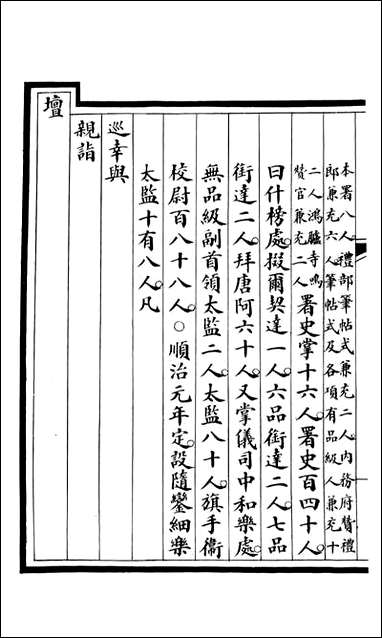 本署八人禮部筆帖式兼充二人內務府贊禮
郎兼充六人筆帖式及各項有品級人兼充十
二人鴻臚寺鳴
贊官兼充二人署史掌十六人署史百四十人
曰什榜處掇爾契達一人六品銜達二人七品
銜達二人拜唐阿六十人又掌儀司中和樂處
無品級副首領太監二人太監八十人旗手衞
校尉百八十八人○順治元年定設隨鑾細樂
太監十有八人凡
巡幸與
親詣
壇